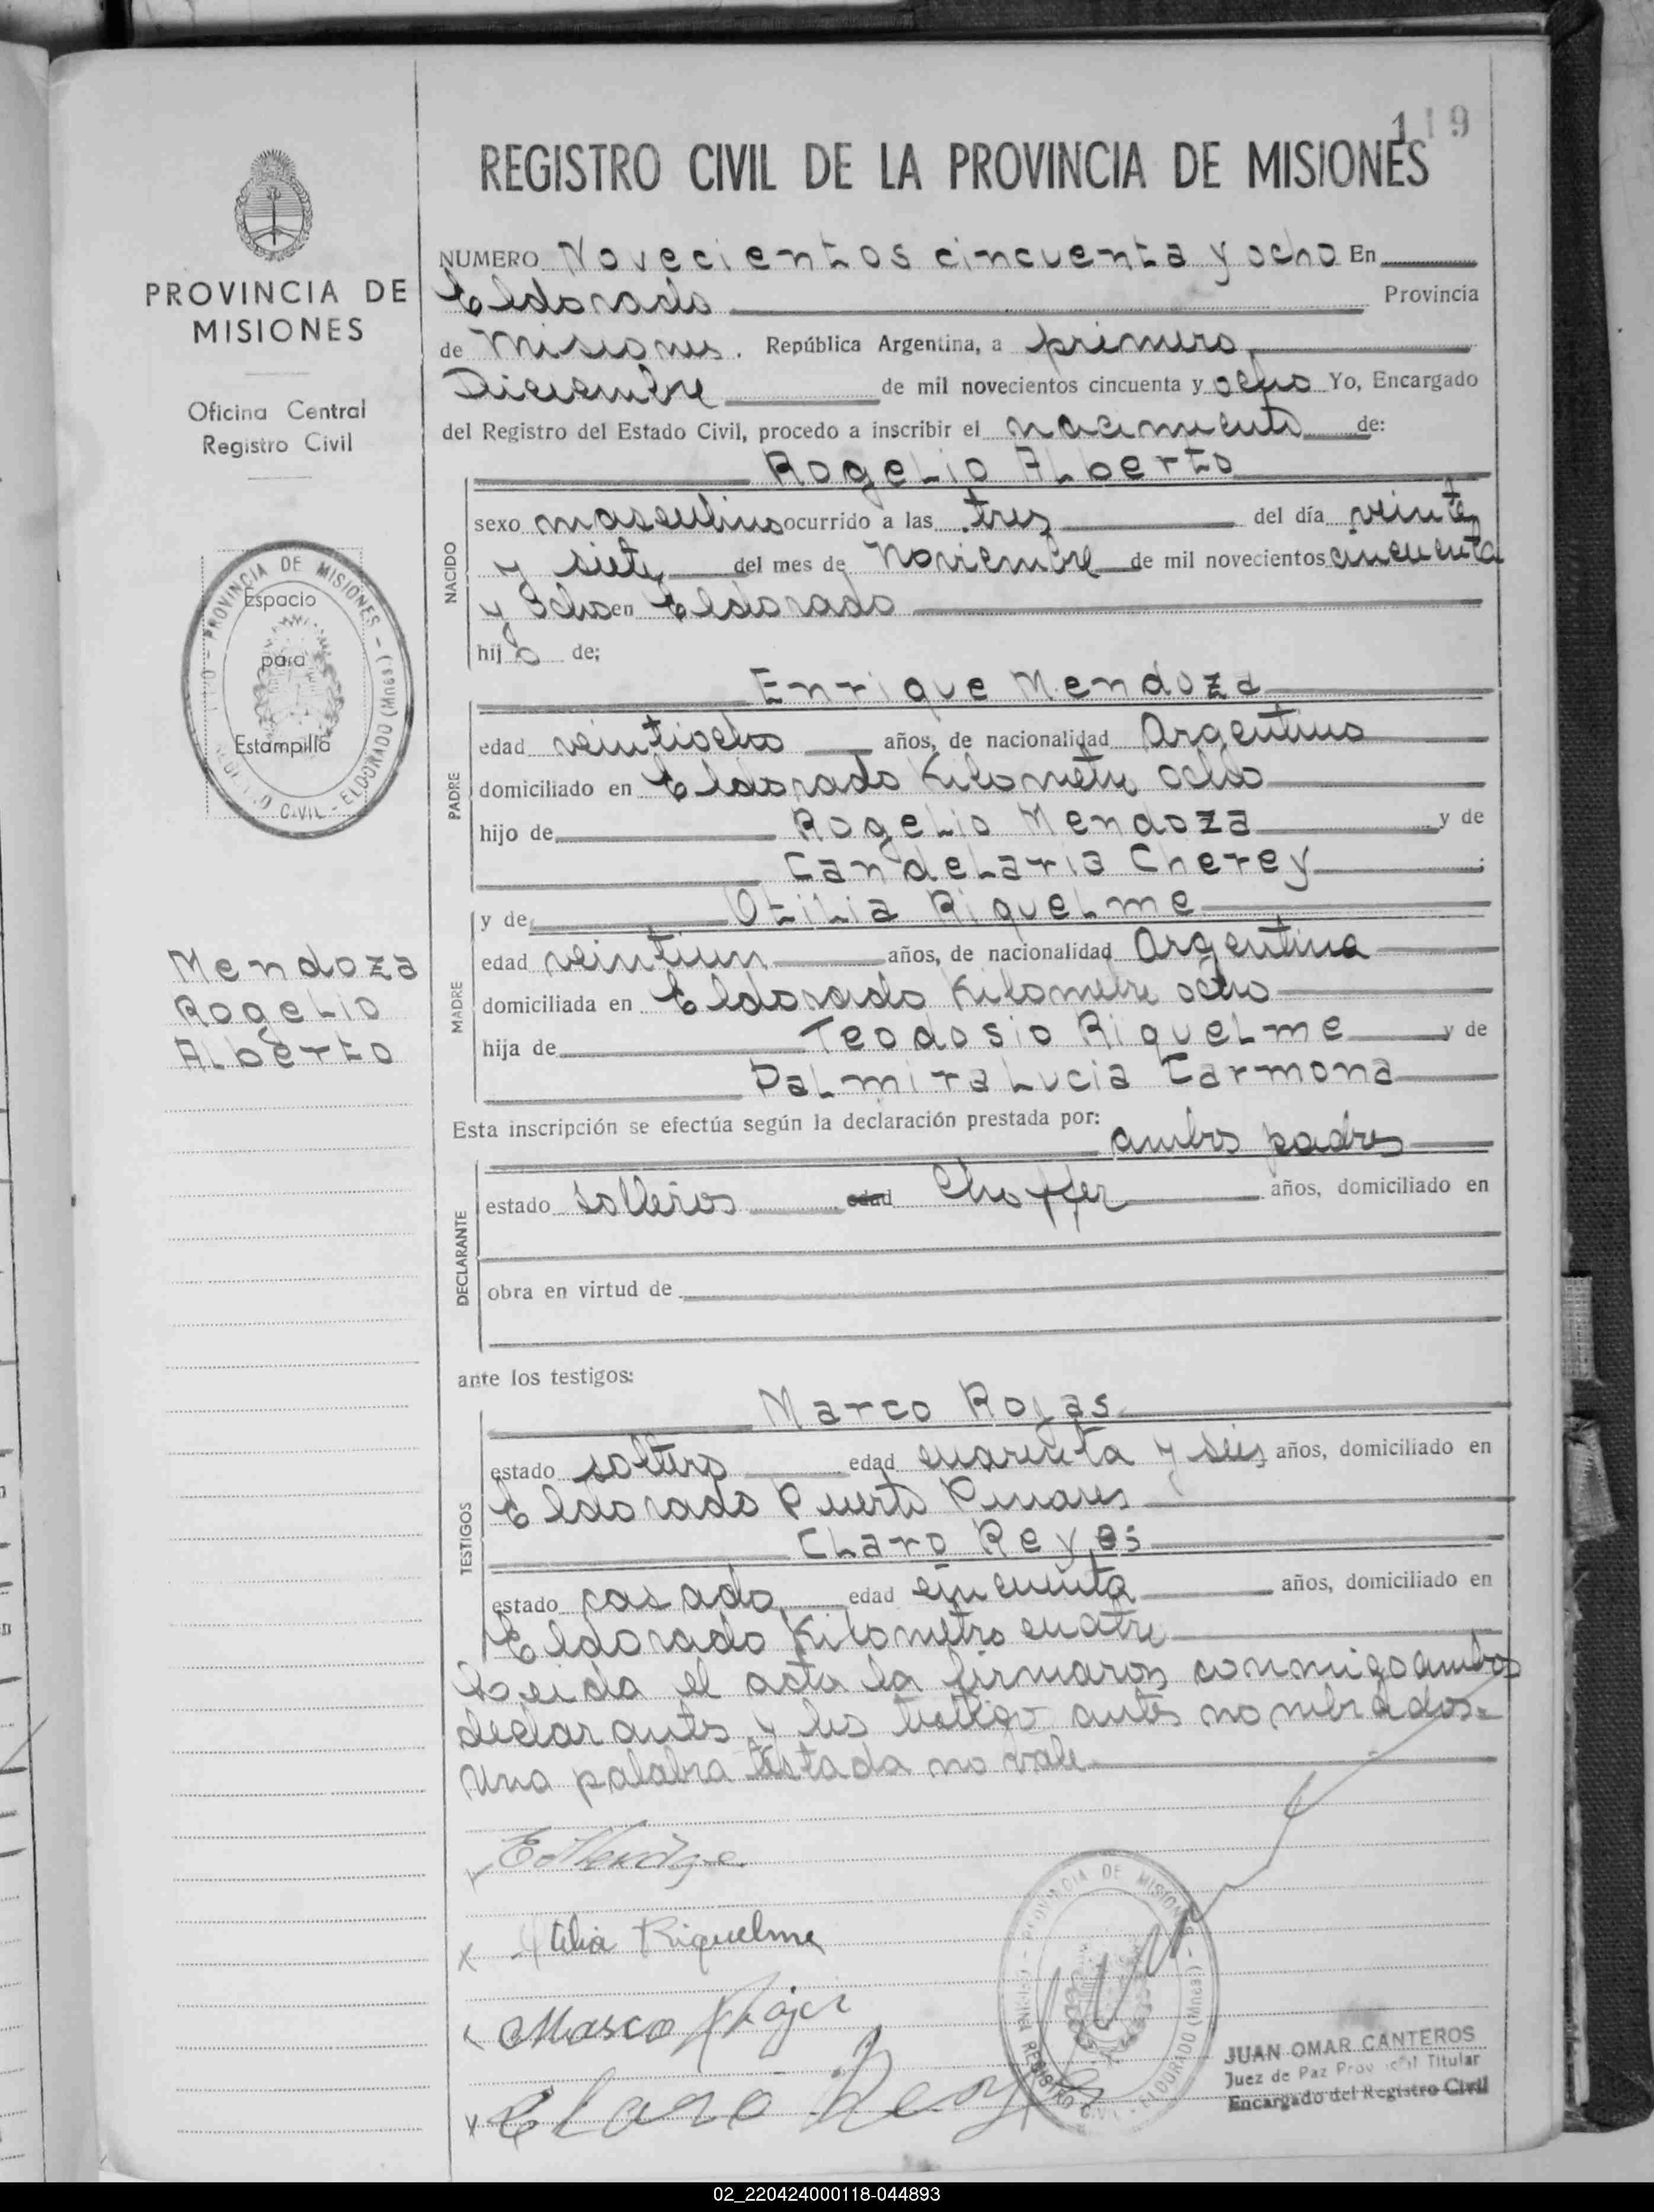 119
REGISTRO CIVIL DE LA PROVINCIA DE MISIONES
PROVINCIA DE
MISIONES
Oficina Central
Registro Civil
PROVINCIA DE MISIONES - ELDORADO (Mnes.)
Espacio
para
Estampilla
CIVIL
Mendoza
Rogelio
Alberto
NUMERO Novecientos cincuenta y ocho En
Eldorado Provincia
de Misiones. República Argentina, a primero
Diciembre de mil novecientos cincuenta y ocho Yo, Encargado
del Registro del Estado Civil, procedo a inscribir el nacimiento de:
Rogelio Alberto
NACIDO
sexo masculino ocurrido a las tres del día veinte
y siete del mes de Noviembre de mil novecientos cincuenta
y Ocho en Eldorado
hijo de;
Enrique Mendoza
PADRE
edad veintiocho años, de nacionalidad Argentino
domiciliado en Eldorado Kilometro ocho
hijo de Rogelio Mendoza y de
Candelaria Cherey
y de Otilia Riquelme
MADRE
edad veintiun años, de nacionalidad Argentina
domiciliada en Eldorado Kilometro ocho
hija de Teodosio Riquelme y de
Palmira Lucia Carmona
Esta inscripción se efectúa según la declaración prestada por: ambos padres
DECLARANTE
estado solteros edad Choffer años, domiciliado en
obra en virtud de
ante los testigos:
Marco Rojas
TESTIGOS
estado soltero edad cuarenta y seis años, domiciliado en
Eldorado Puerto Pinares
Claro Reyes
estado casado edad cincuenta años, domiciliado en
Eldorado Kilometro cuatro
Leida el acta la firmaron conmigo ambos
declarantes y los testigo antes nombrados.=
Una palabra testada no vale
Otilia Riquelme
Marco Rojas
Claro Reyes
PROVINCIA DE MISIONES - ELDORADO (Mnes.)
REGISTRO CIVIL
JUAN OMAR CANTEROS
Juez de Paz Titular
Encargado del Registro Civil
02_220424000118-044893